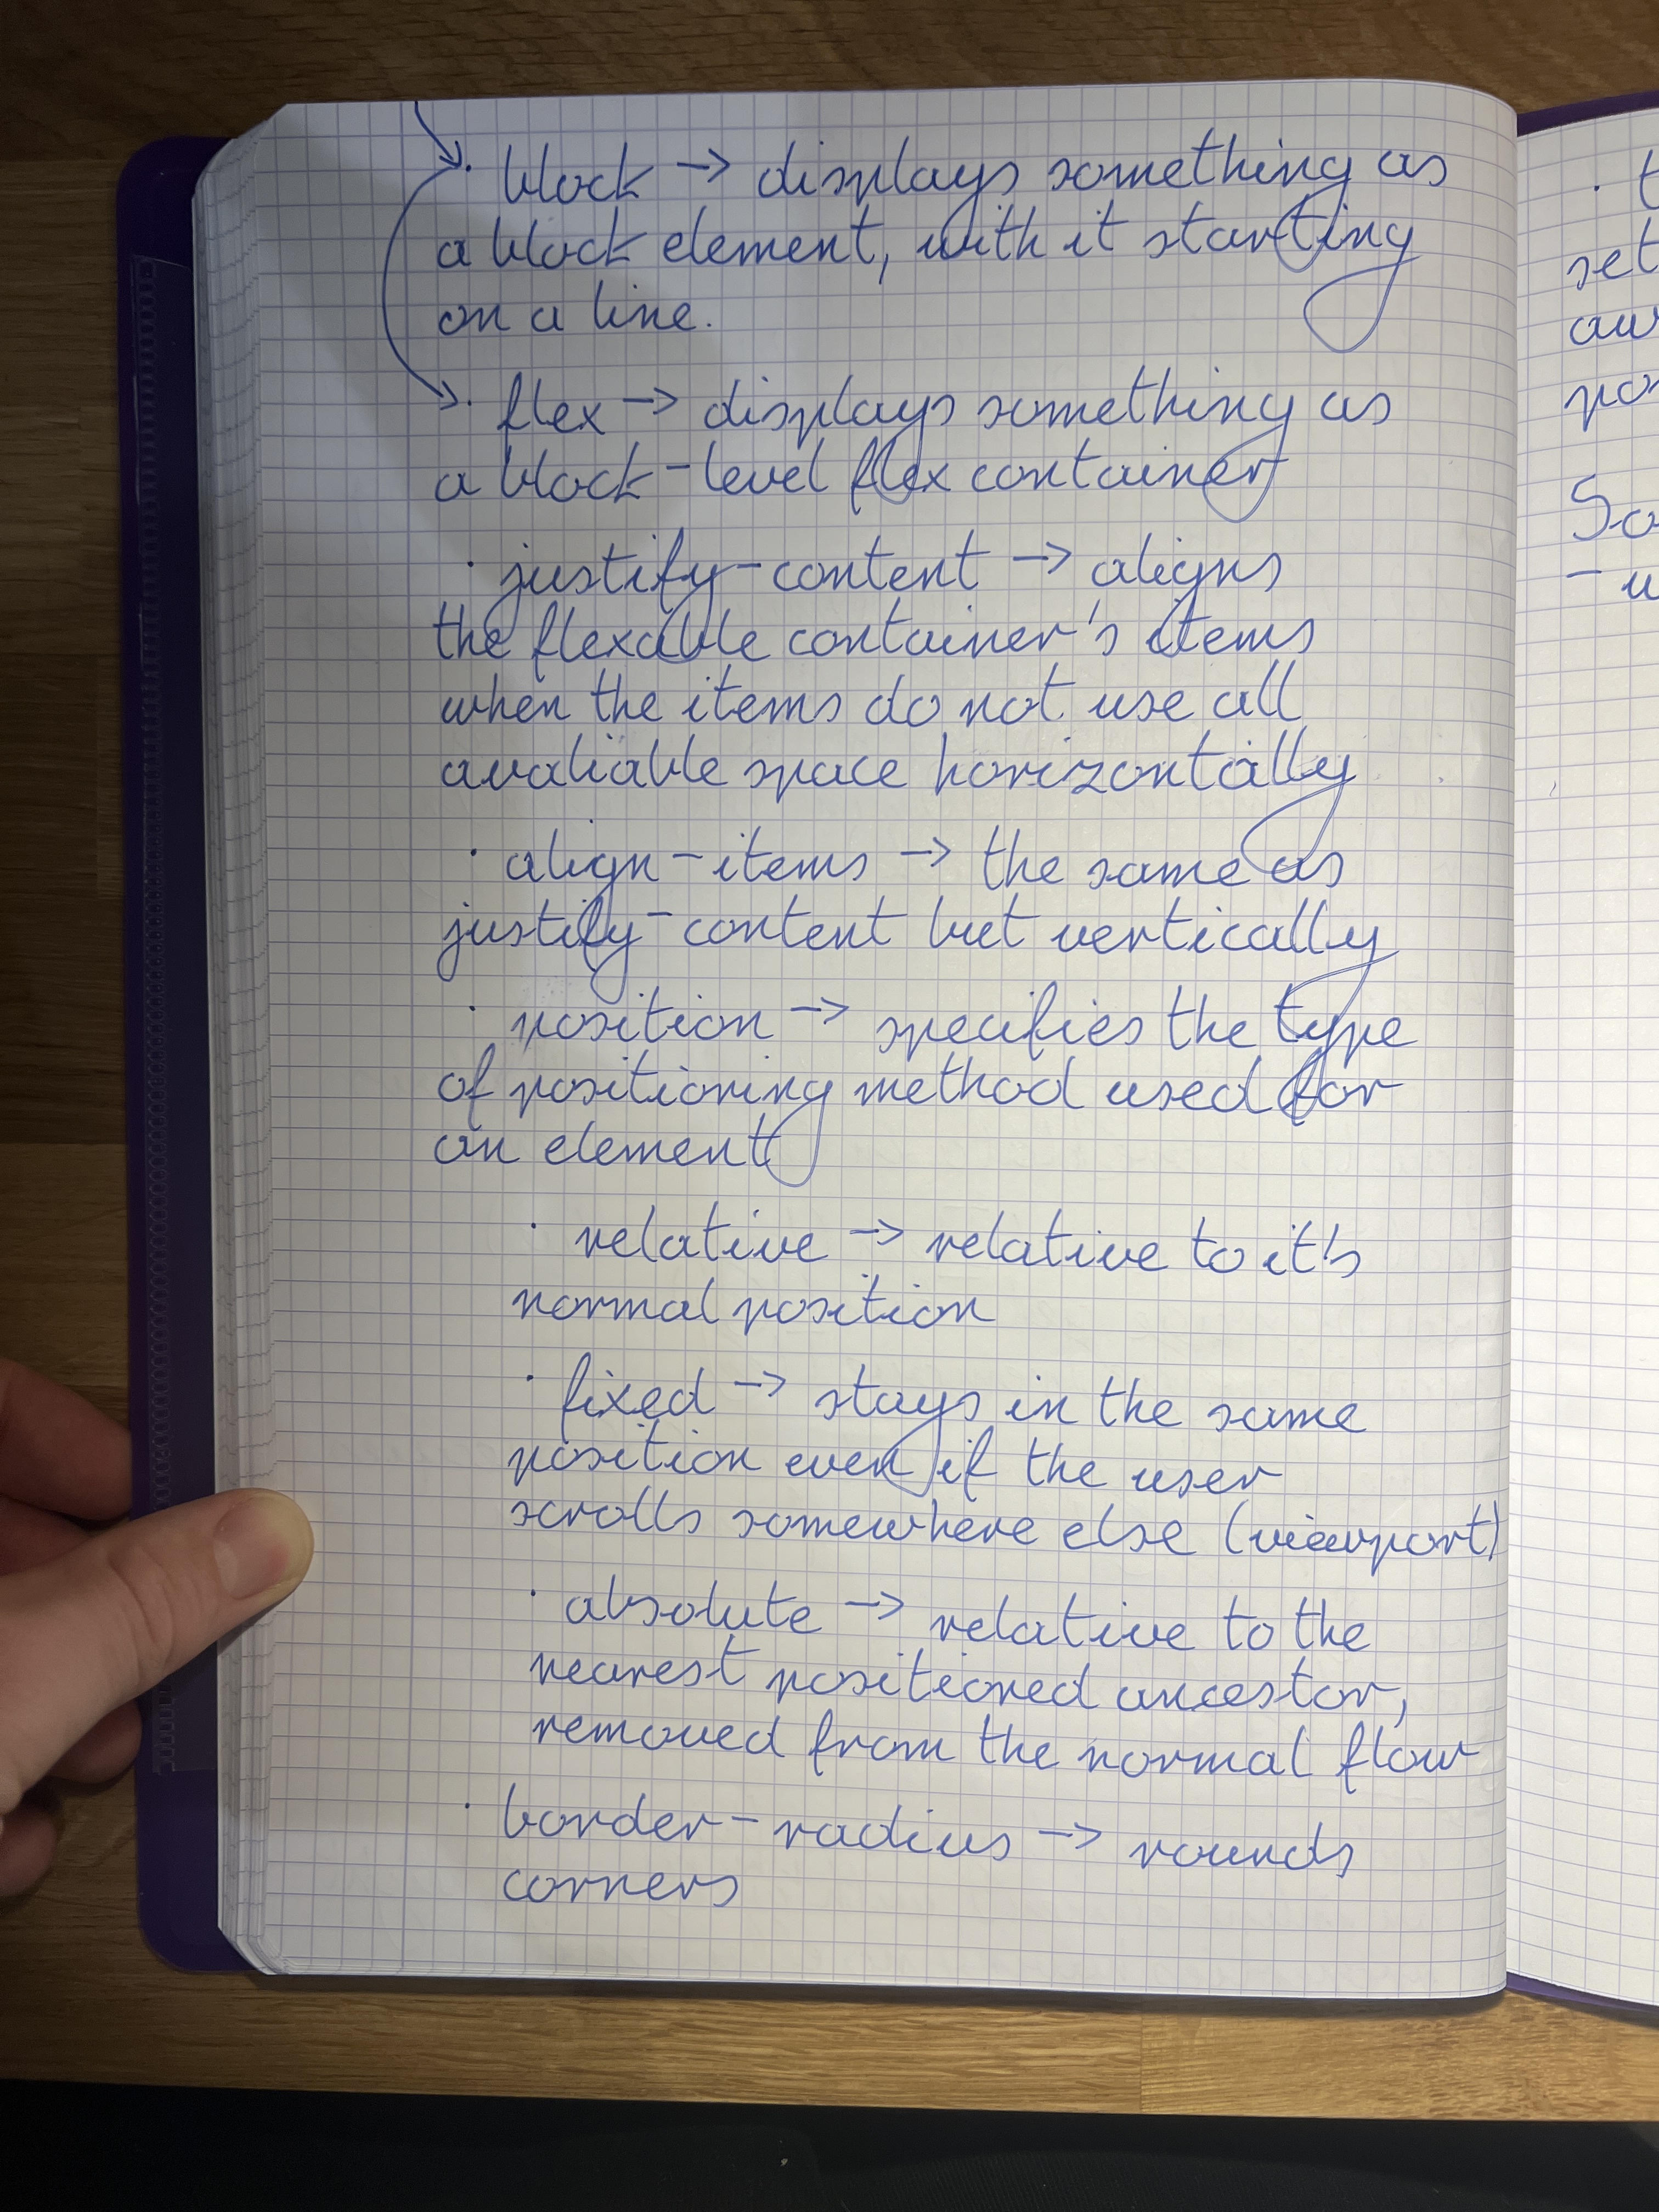 · block → displays something as
a block element, with it starting
on a line.
· flex → displays something as
a block-level flex container
· justify-content → aligns
the flexable container's items
when the items do not use all
avaliable space horizontally
· align-items → the same as
justify-content but vertically
· position → specifies the type
of positioning method used for
an element
· relative → relative to it's
normal position
· fixed → stays in the same
position even if the user
scrolls somewhere else (viewport)
· absolute → relative to the
nearest positioned ancestor,
removed from the normal flow
· border-radius → rounds
corners